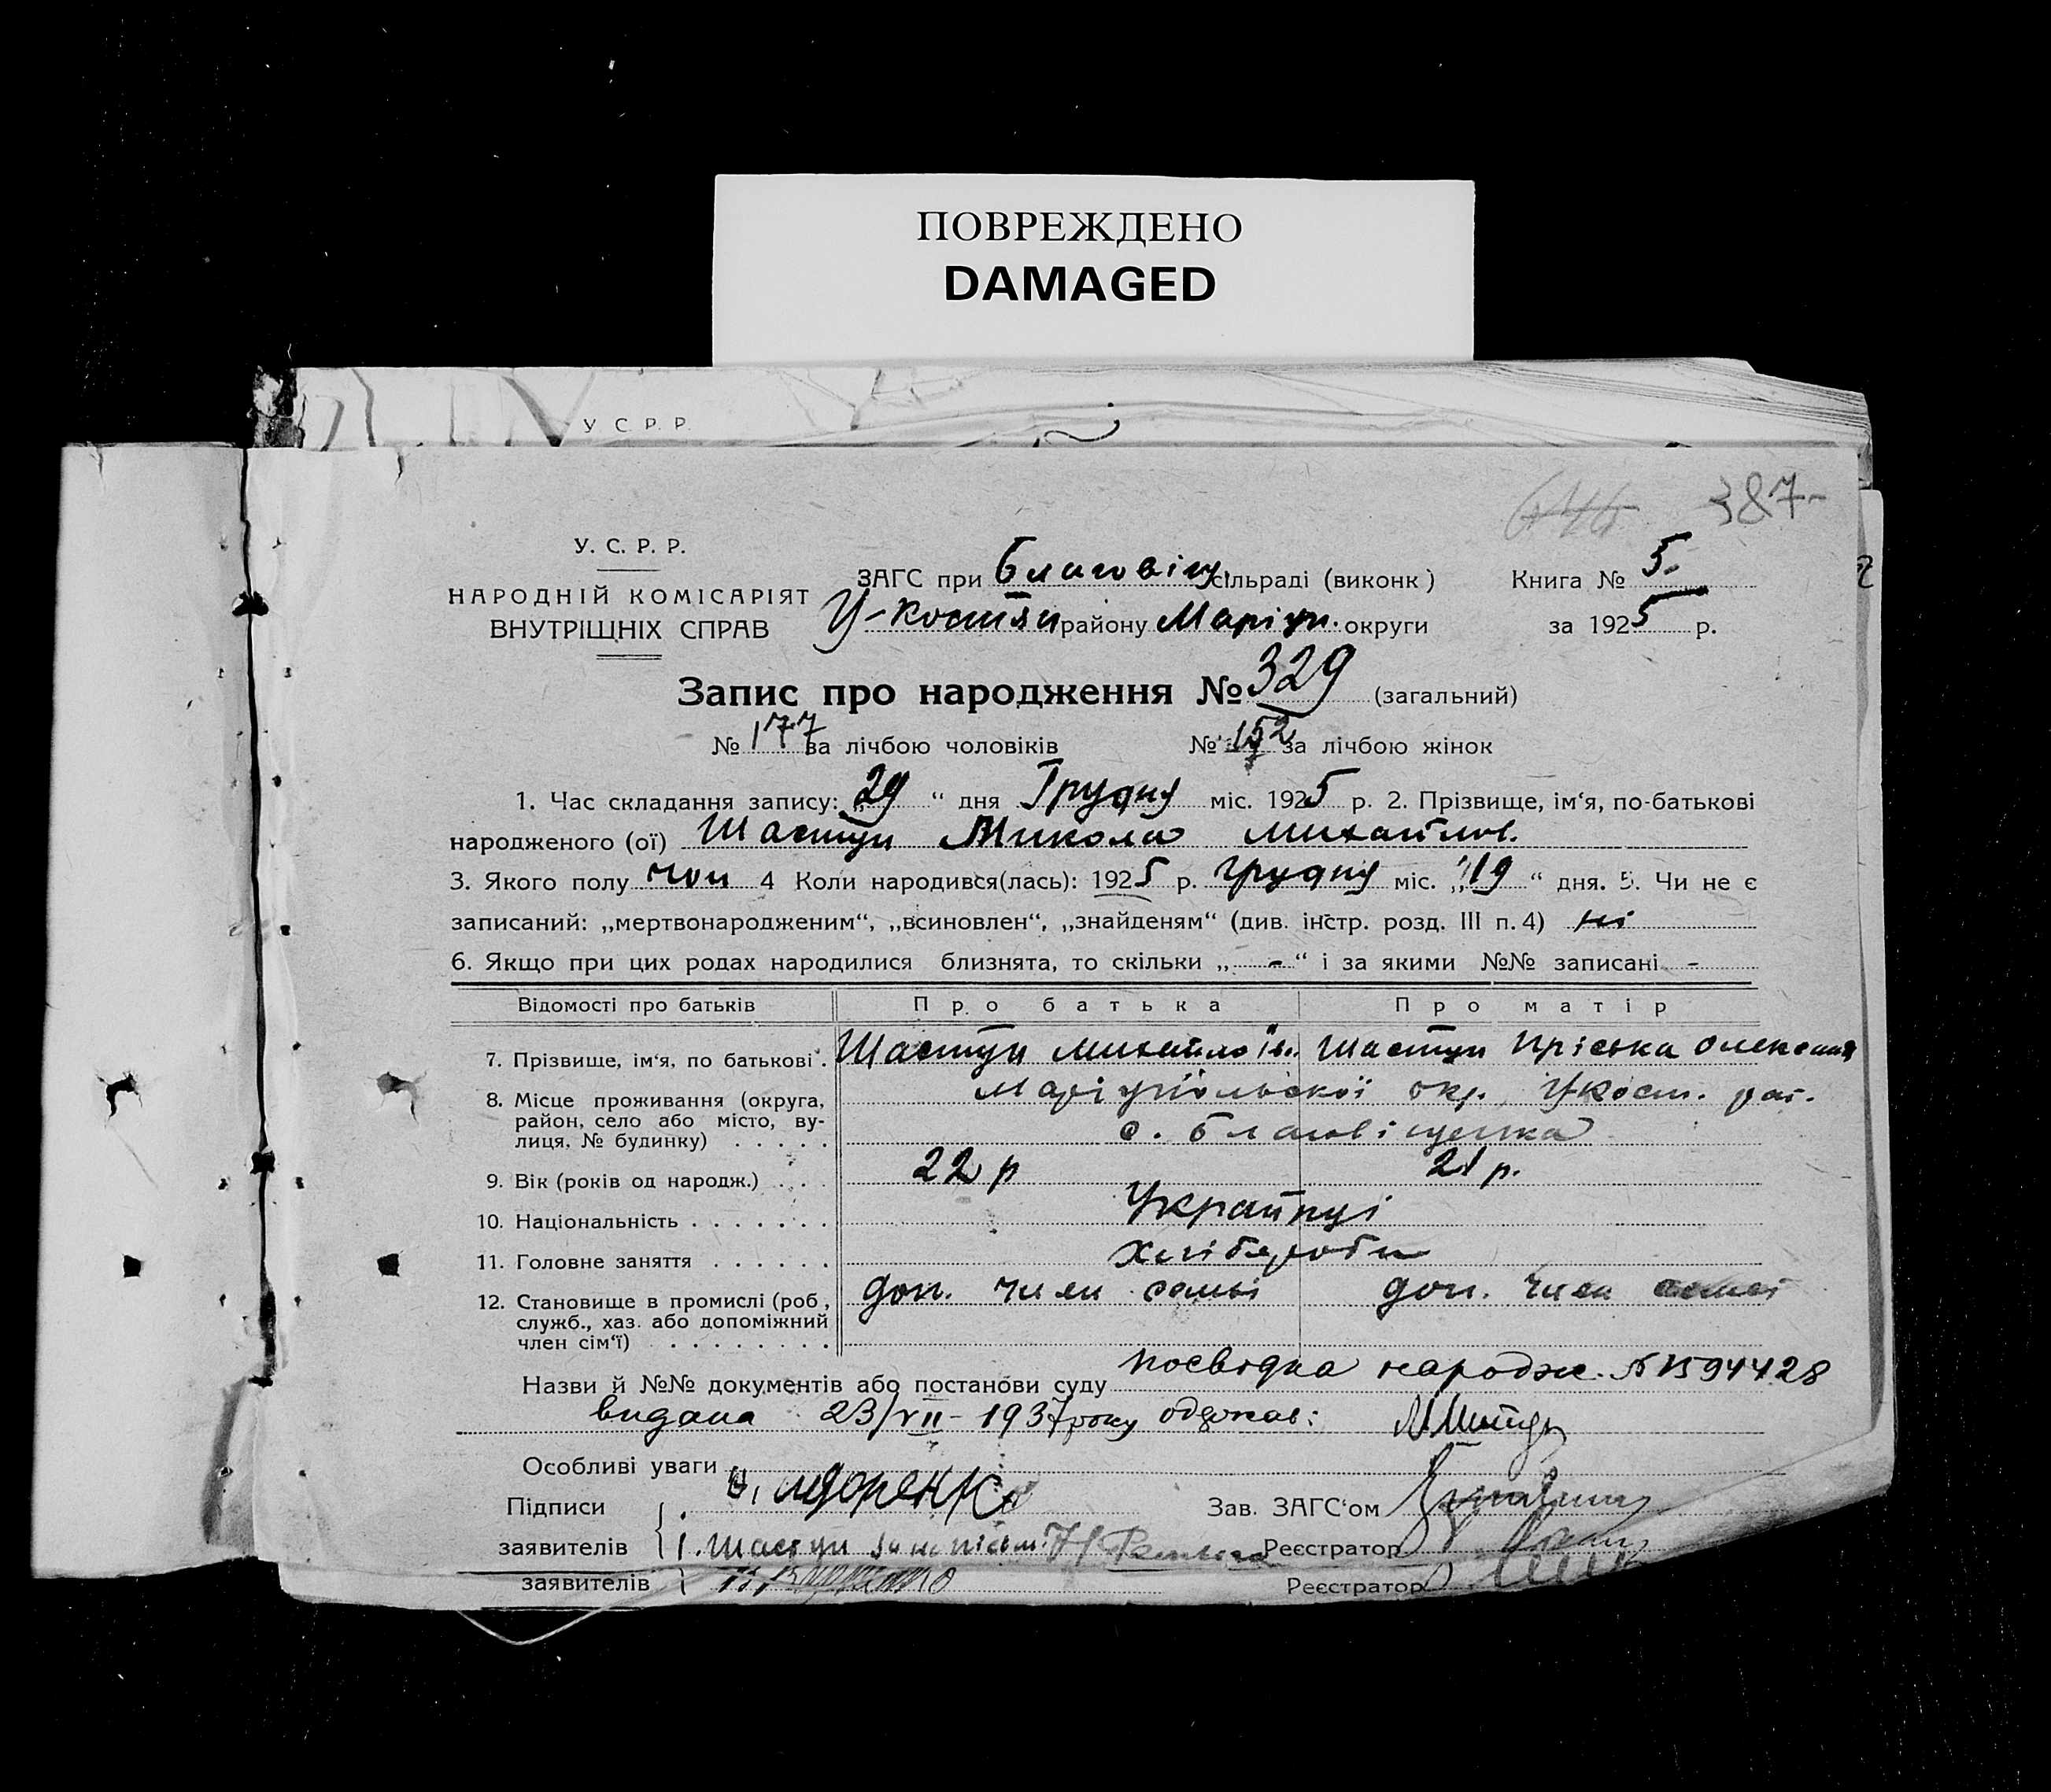 ПОВРЕЖДЕНО
DAMAGED
У С. Р. Р.
387-
У. С. Р. Р.
НАРОДНІЙ КОМІСАРІЯТ
ВНУТРІШНІХ СПРАВ
ЗАГС при Благовіщ. сільраді (виконк)
У-Костян району Маріуп. округи
Книга № 5-
за 1925 р.
Запис про народження № 329 (загальний)
№ 177 за лічбою чоловіків № 152 за лічбою жінок
1. Час складання запису: „29“ дня Грудня міс. 1925 р. 2. Прізвище, ім‘я, по-батькові
народженого (ої) Шастун Микола Михайлов.
3. Якого полу чол 4 Коли народився(лась): 1925 р. грудня міс. „19“ дня. 5. Чи не є
записаний: „мертвонародженим“, „всиновлен“, „знайденям“ (див. інстр. розд. III п. 4) ні
6. Якщо при цих родах народилися близнята, то скільки „-“ і за якими №№ записані -
Відомості про батьків Про батька Про матір
7. Прізвище, ім‘я, по батькові. Шастун Михайло Ів. Шастун Пріська Олексієв
8. Місце проживання (округа, район, село або місто, вулиця, № будинку) Маріупольскої окр. Укост. рай.
с. Благовіщенка
9. Вік (років од народж.) 22 р 21 р.
10. Національність Українці
11. Головне заняття Хлібороби
12. Становище в промислі (роб, служб., хаз. або допоміжний член сім‘ї) доп. член семьї доп. член семьї
Назви й №№ документів або постанови суду посвідка народж. № 1594428
видана 23/VII-1937 року одержав:
Особливі уваги
Підписи
заявителів 1. Шастун
Зав. ЗАГС‘ом
Реєстратор
заявителів
Реєстратор